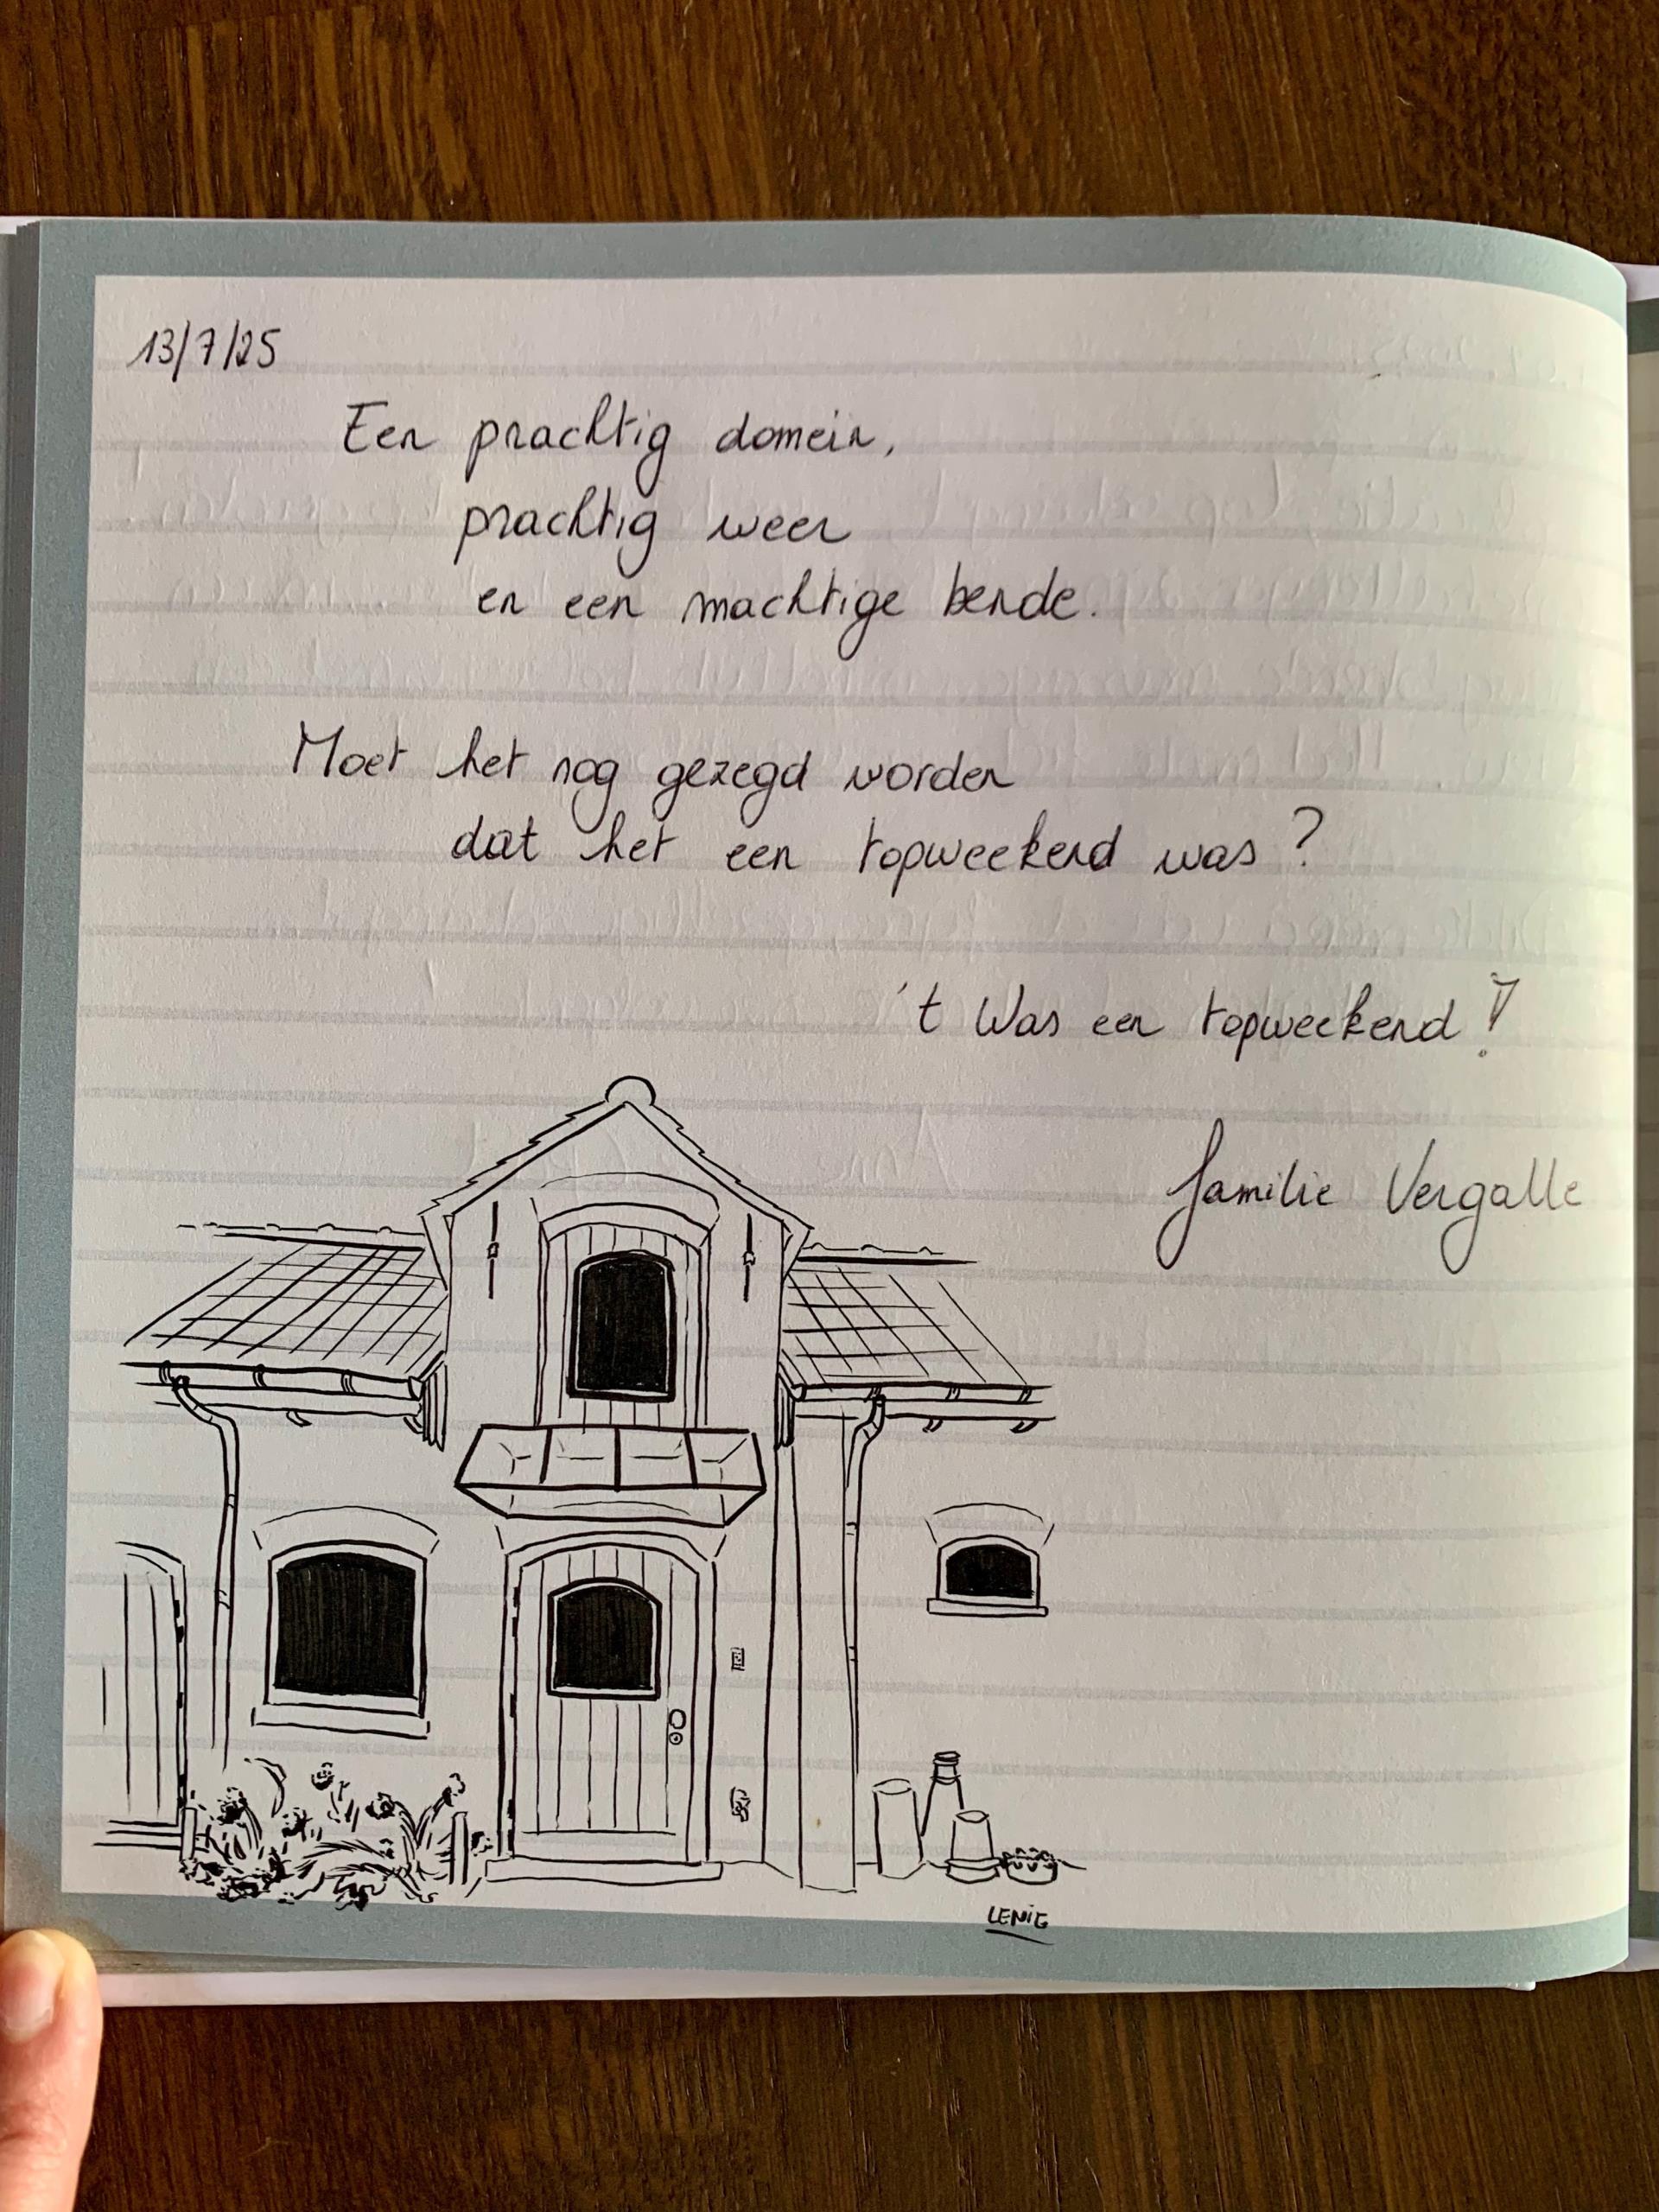 13/7/25
Een prachtig domein,
prachtig weer
en een machtige bende.
Moet het nog gezegd worden
dat het een topweekend was?
't Was een topweekend!
familie Vergalle
LENIE